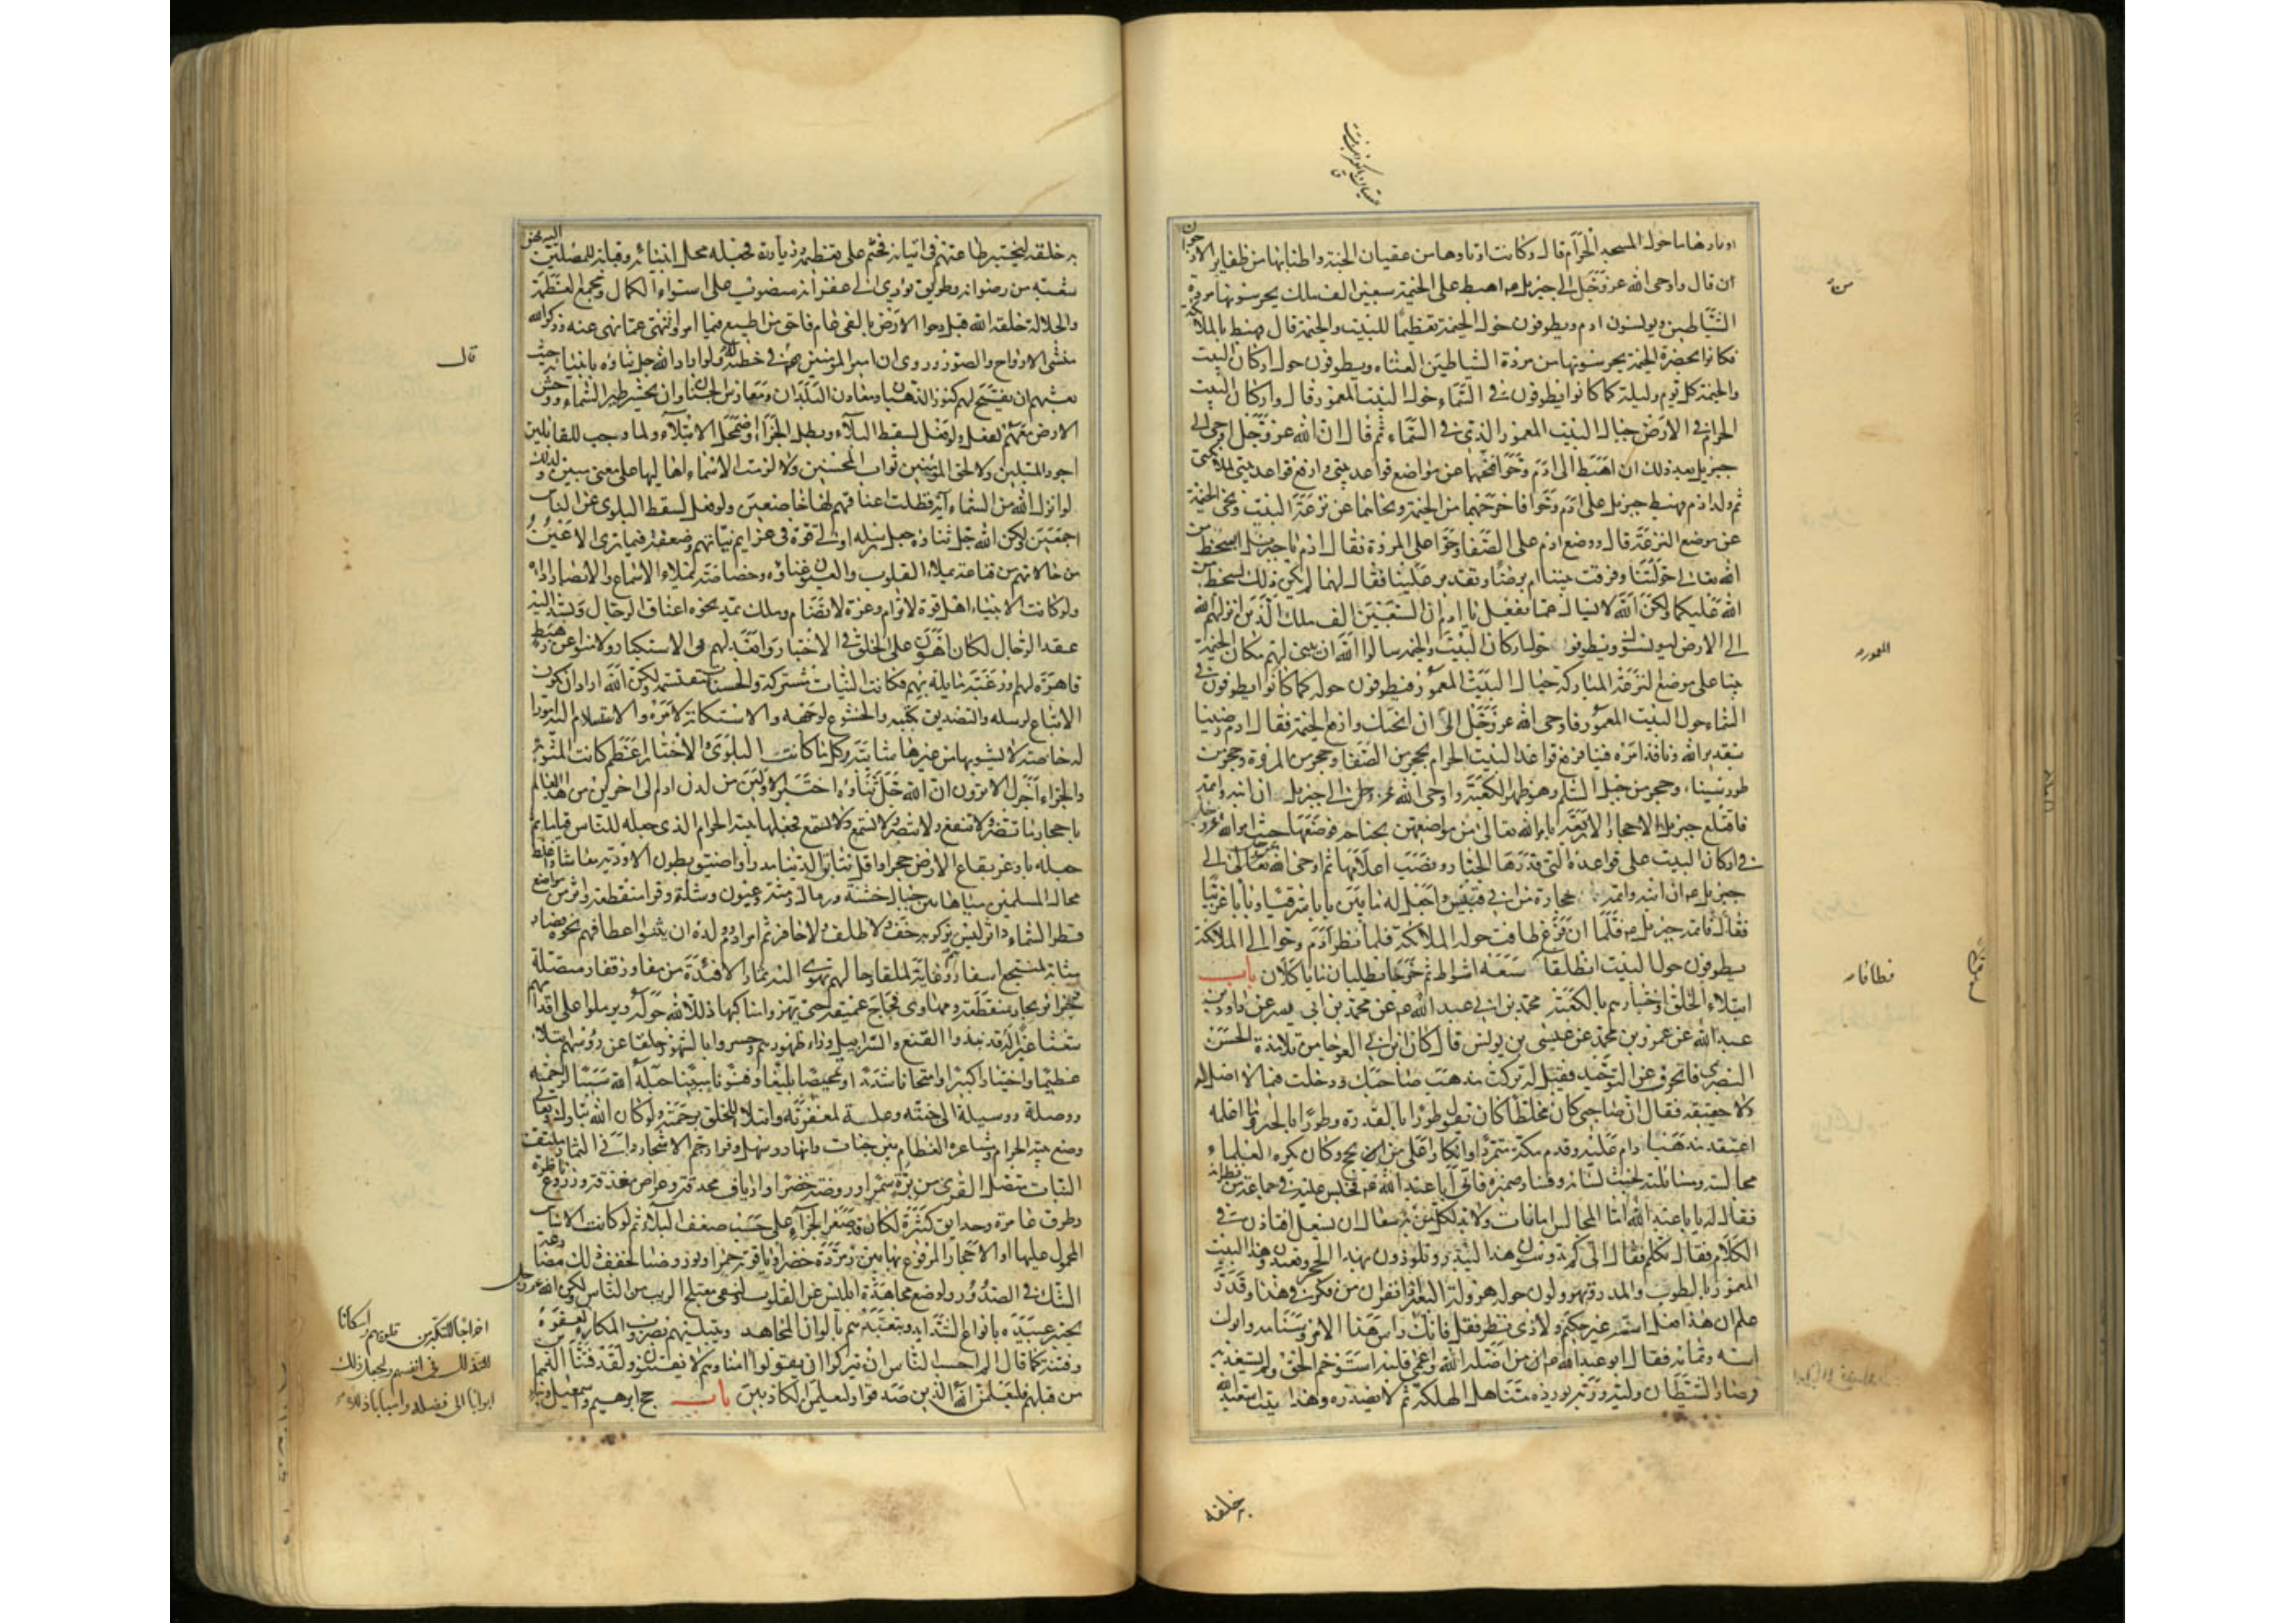 اوتادها ما حول المسجد الحرام قال وكانت اوتادها من عقيان الجنة واطنابها من ظفاير الارجوان
قال واوحى الله عز وجل الى جبرئيل اهبط على الخيمة سبعين الف ملك يحرسونها من مردة
الشياطين ويونسون ادم ويطوفون حول الخيمة تعظيما للبيت والخيمة قال فهبط بالملائكة
فكانوا بحضرة الخيمة يحرسونها من مردة الشياطين العتاه ويطوفون حول اركان البيت
والخيمة كل يوم وليلة كما كانوا يطوفون في السماء حول البيت المعمور قال واركان البيت
الحرام في الارض حيال البيت المعمور الذي في السماء ثم قال ان الله عز وجل اوحى الى
جبرئيل بعد ذلك ان اهبط الى ادم وحوا فنحهما عن مواضع قواعد بيتي وارفع قواعد بيتي لملائكتي
ثم ولد ادم فهبط جبرئيل على ادم وحوا فاخرجهما من الخيمة ونحاهما عن ترعة البيت ونحى الخيمة
عن موضع الترعة قال ووضع ادم على الصفا وحوا على المروة فقال ادم يا جبرئيل ابسخط من
الله تعالى حولتنا وفرقت بيننا ام برضا وتقدير علينا فقال لهما لم يكن ذلك بسخط من
الله عليكما ولكن الله لا يسال عما يفعل يا ادم ان السبعين الف ملك الذين انزلهم الله
الى الارض ليونسوك ويطوفوا حول اركان البيت والخيمة سالوا الله ان يبني لهم مكان الخيمة
بيتا على موضع الترعة المباركة حيال البيت المعمور فيطوفون حوله كما كانوا يطوفون في
السماء حول البيت المعمور فاوحى الله عز وجل الى ان انحيك وارفع الخيمة فقال ادم رضينا
بتقدير الله ونافذ امره فينا فرفع قواعد البيت الحرام بحجر من الصفا وحجر من المروة وحجر من
طور سيناء وحجر من جبل السلم وهو ظهر الكعبة واوحى الله عز وجل الى جبرئيل ان ابنه واتمه
فاقتلع جبرئيل الاحجار الاربعة بامر الله تعالى من مواضعهن بجناحه فوضعها حيث امر الله عز وجل
في اركان البيت على قواعده التي قدرها الجبار ونصب اعلامها ثم اوحى الله تعالى الى
جبرئيل ان ابنه واتمه بحجارة من ابي قبيس واجعل له بابين بابا شرقيا وبابا غربيا
فقال فاتمه جبرئيل فلما ان فرغ طافت حوله الملائكة فلما نظر ادم وحوا الى الملائكة
يطوفون حول البيت انطلقا سبعة اشواط ثم خرجا يطلبان ما ياكلان باب
ابتلاء الخلق واختبارهم بالكعبة محمد بن ابي عبد الله عن محمد بن ابي يسر عن داود بن
عبد الله عن عمرو بن محمد عن عيسى بن يونس قال كان ابن ابي العوجا من تلامذة الحسن
البصري فانحرف عن التوحيد فقيل له تركت مذهب صاحبك ودخلت فيما لا اصل له
ولا حقيقة فقال ان صاحبي كان مخلطا كان يقول طورا بالقدر وطورا بالجبر وما اعلمه
اعتقد مذهبا دام عليه وقدم مكة متمردا وانكارا على من يحج وكان يكره العلماء
مجالسته ومسائلته لخبث لسانه وفساد ضميره فاتى ابا عبد الله فجلس عليه في جماعة من نظرائه
فقال له يا ابا عبد الله ان المجالس امانات ولا بد لكل من به سعال ان يسعل افتاذن في
الكلام فقال تكلم فقال الى كم تدوسون هذا البيدر وتلوذون بهذا الحجر وتعبدون هذا البيت
المعمور بالطوب والمدر وتهرولون حوله هرولة البعير اذا نفر ان من فكر في هذا وقدر
علم ان هذا فعل اسسه غير حكيم ولا ذي نظر فقل فانك راس هذا الامر وسنامه وابوك
اسه وتمامه فقال ابو عبد الله ان من اضله الله واعمى قلبه استوخم الحق ولم يستعذبه
وصار الشيطان وليه وربه يورده مناهل الهلكة ثم لا يصدره وهذا بيت استعبد الله
به خلقه
به خلقه ليختبر طاعتهم في اتيانه فحثهم على تعظيمه وزيارته فجعله محل انبيائه وقبلة للمصلين اليه فهو
شعبه من رضوانه وطريق يودي الى غفرانه منصوب على استواء الكمال ومجمع العظمة
والجلالة خلقه الله قبل دحوا الارض بالفي عام فاحق من اطيع فيما امر وانتهى عما نهى عنه وزجر الله
منشى الارواح والصور وروى ان امير المومنين قال في خطبة له ولو اراد الله جل ثناؤه بانبيائه حيث
بعثهم ان يفتح لهم كنوز الذهبان ومعادن البلدان ومغارس الجنان وان يحشر طير السماء ووحش
الارض معهم لفعل ولو فعل لسقط البلاء وبطل الجزاء واضمحل الابتلاء ولما وجب للقابلين
اجور المبتلين ولا لحق المومنين ثواب المحسنين ولا لزمت الاسماء اهاليها على معنى مبين ولذلك
لو انزل الله من السماء اية فظلت اعناقهم لها خاضعين ولو فعل لسقط البلوى عن الناس
اجمعين ولكن الله جل ثناؤه جعل رسله اولى قوة في عزايم نياتهم وضعفة فيما ترى الاعين
من حالاتهم من قناعة تملاء القلوب والعيون غناؤه وخصاصة تملاء الاسماع والابصار اذاه
ولو كانت الانبياء اهل قوة لا ترام وعزة لا تضام وملك يمد نحوه اعناق الرجال ويشد اليه
عقد الرحال لكان اهون على الخلق في الاختبار وابعد لهم في الاستكبار ولامنوا عن رهبة
قاهرة لهم او رغبة مايلة بهم فكانت النيات مشتركة والحسنات مقتسمة ولكن الله اراد ان يكون
الاتباع لرسله والتصديق بكتبه والخشوع لوجهه والاستكانة لامره والاستسلام اليه امورا
له خاصة لا يشوبها من غيرها شائبة وكلما كانت البلوى والاختبار اعظم كانت المثوبة
والجزاء اجزل الا ترون ان الله جل ثناؤه اختبر الاولين من لدن ادم الى اخرين من هذا العالم
باحجار ما تضر ولا تنفع ولا تبصر ولا تسمع فجعلها بيته الحرام الذي جعله للناس قياما ثم
جعله باوعر بقاع الارض حجرا واقل نتائق الدنيا مدرا واضيق بطون الاودية معاشا واغلظ
محال المسلمين مياها بين جبال خشنة ورمال دمثة وعيون وشلة وقرى منقطعة واثر من مواضع
قطر السماء داثر ليس يزكو به خف ولا ظلف ولا حافر ثم امر ادم وولده ان يثنوا اعطافهم نحوه فصار
مثابة لمنتجع اسفارهم وغاية لملقى رحالهم تهوي اليه ثمار الافئدة من مفاوز قفار متصلة
وجزائر بحار منقطعة ومهاوي فجاج عميقة حتى يهزوا مناكبهم ذللا لله حوله ويرملوا على اقدامهم
شعثا غبرا له قد نبذوا القنع والسرابيل وراء ظهورهم وحسروا بالشعور حلقا عن رؤسهم ابتلاء
عظيما واختبارا كبيرا وامتحانا شديدا وتمحيصا بليغا وقنوتا مبينا جعله الله سببا لرحمته
ووصلة ووسيلة الى جنته وعلة لمغفرته وابتلاء للخلق برحمته ولو كان الله تبارك وتعالى
وضع بيته الحرام ومشاعره العظام بين جنات وانهار وسهل وقرار جم الاشجار داني الثمار ملتف
النبات متصل القرى من برة سمراء وروضة خضراء وارياف محدقة وعراص مغدقة وزروع ناظرة
وطرق عامرة وحدايق كثيرة لكان قد صغر الجزاء على حسب ضعف البلاء ثم لو كانت الاساس
المحمول عليها او الاحجار المرفوع بها بين زمردة خضراء وياقوتة حمراء ونور وضياء لخفف ذلك مصارعة
الشك في الصدور ولوضع مجاهدة ابليس عن القلوب ولنفى معتلج الريب من الناس ولكن الله عز وجل
يختبر عبيده بانواع الشدايد ويتعبدهم بالوان المجاهد ويبتليهم بضروب المكاره
وفتنة كما قال الم احسب الناس ان يتركوا ان يقولوا امنا وهم لا يفتنون ولقد فتنا الذين
من قبلهم فليعلمن الله الذين صدقوا وليعلمن الكاذبين باب حج ابرهيم واسمعيل وبناء
قال
المعموره
اخراجا للتكبر من قلوبهم واسكانا
للتذلل في انفسهم وليجعل ذلك
ابوابا الى فضله واسبابا